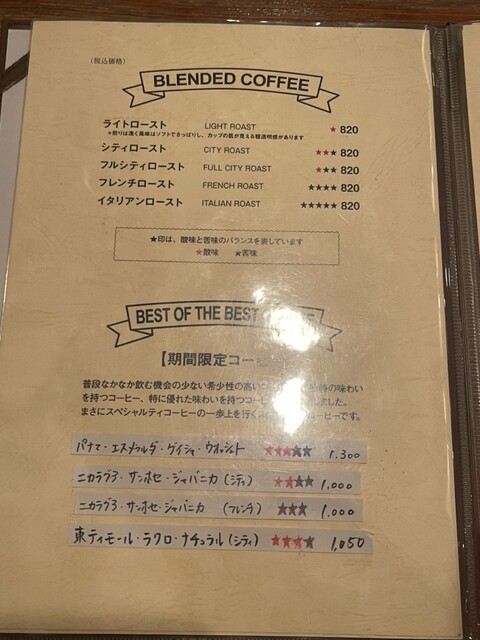 (税込価格)
BLENDED COFFEE
ライトロースト LIGHT ROAST ★ 820
シティロースト CITY ROAST ★★★ 820
フルシティロースト FULL CITY ROAST ★★★ 820
フレンチロースト FRENCH ROAST ★★★★ 820
イタリアンロースト ITALIAN ROAST ★★★★★ 820
★印は、酸味と苦味のバランスを表しています
★酸味 ★苦味
BEST OF THE BEST
【期間限定コー
普段なかなか飲む機会の少ない希少性の高い 特の味わい
を持つコーヒー、特に優れた味わいを持つコーヒー ました。
まさにスペシャルティコーヒーの一歩上を行く コーヒーです。
パナマ・エスメラルダ・ゲイシャ・ウォッシュト ★★★★★ 1,300
ニカラグラ・サンホセ・ジャバニカ (シティ) ★★★★ 1,000
ニカラグラ・サンホセ・ジャバニカ (フレンチ) ★★★ 1,000
東ティモール・ラクロ・ナチュラル(シティ) ★★★★ 1,050